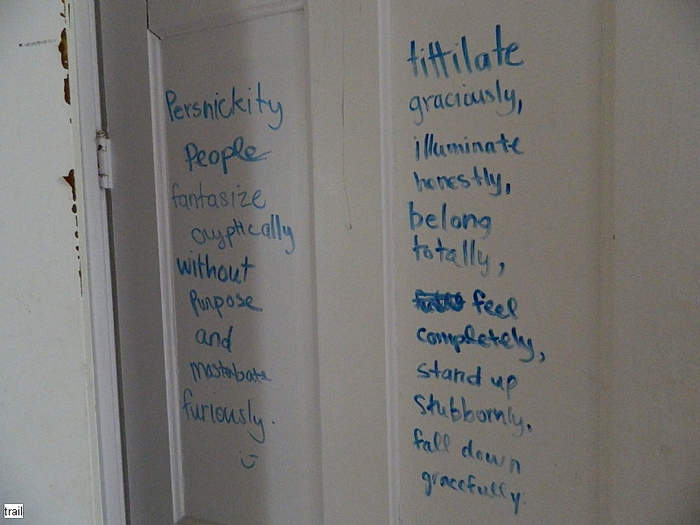 Persnickity
People
fantasize
cryptically
without
Purpose
and
masterbate
furiously.
tittilate
graciously,
illuminate
honestly,
belong
totally,
feel
completely,
stand up
stubbornly.
fall down
gracefully.
trail